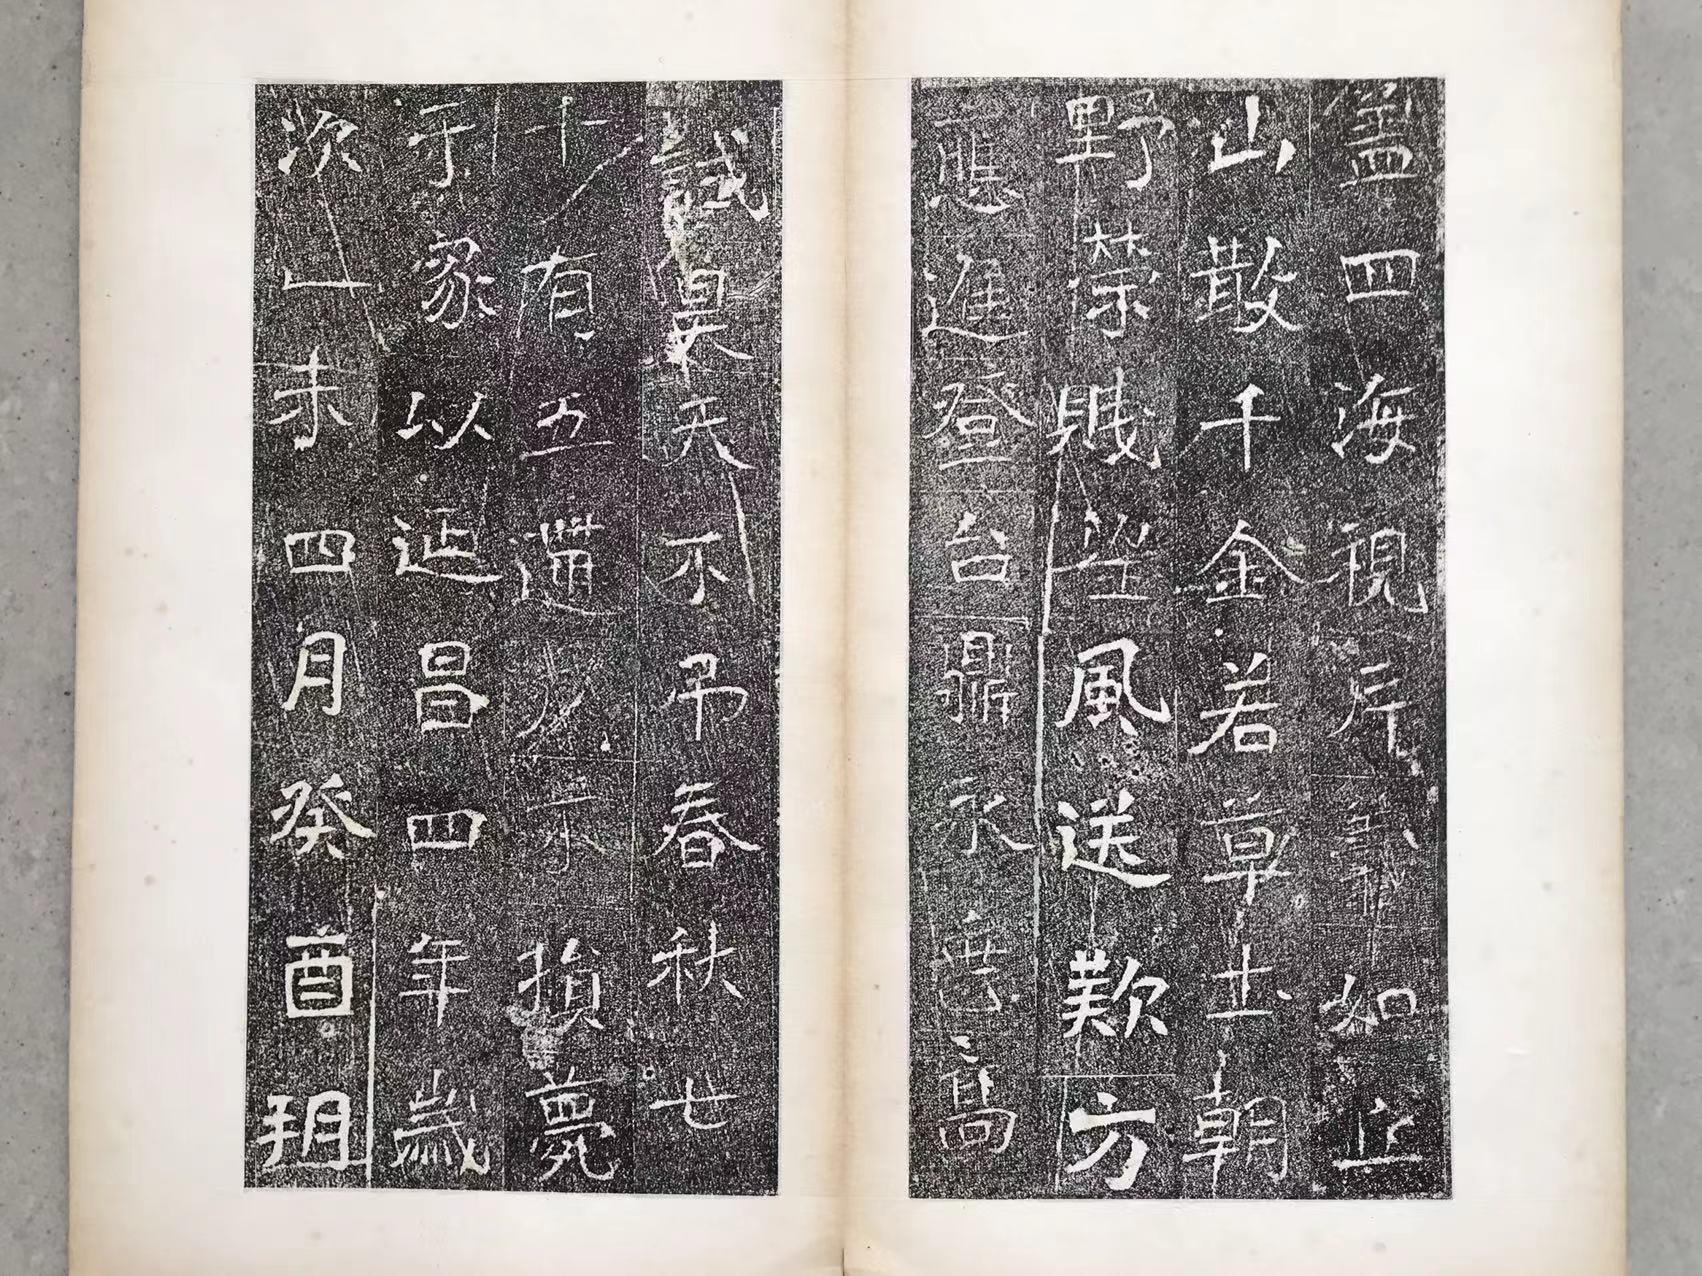 盖四海視片義如丘
山散千金若草土朝
野禁賤望風送歎方
應進登台鼎永
昊天不吊春秋七
十有五遘疾不損薨
于家以延昌四年歲
次乙未四月癸酉朔